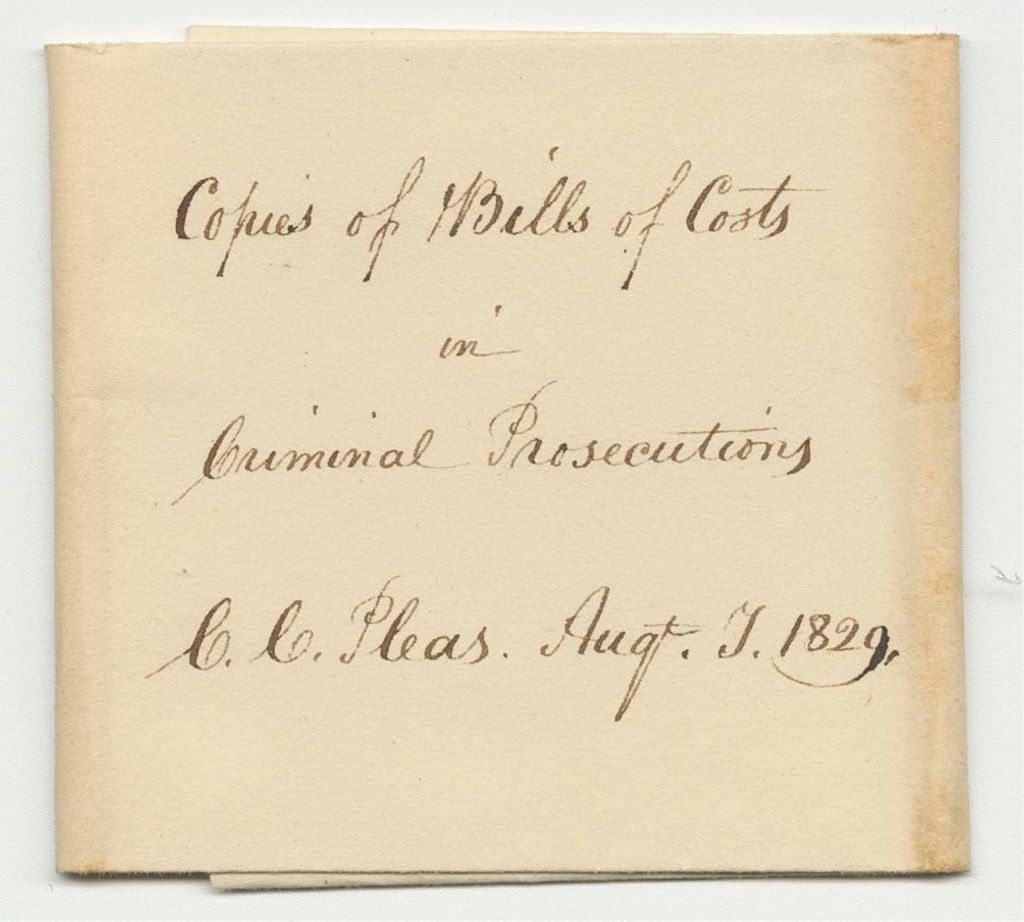 Copies of Bills of Costs
in
Criminal Prosecutions
C. C. Pleas. Augt. T. 1829,